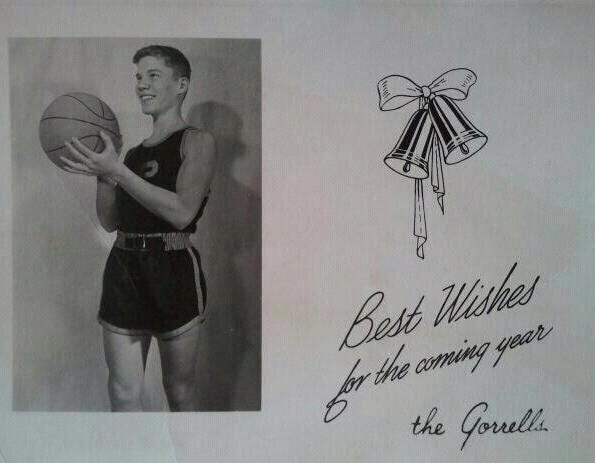 Best Wishes
for the coming year
the Gorrells